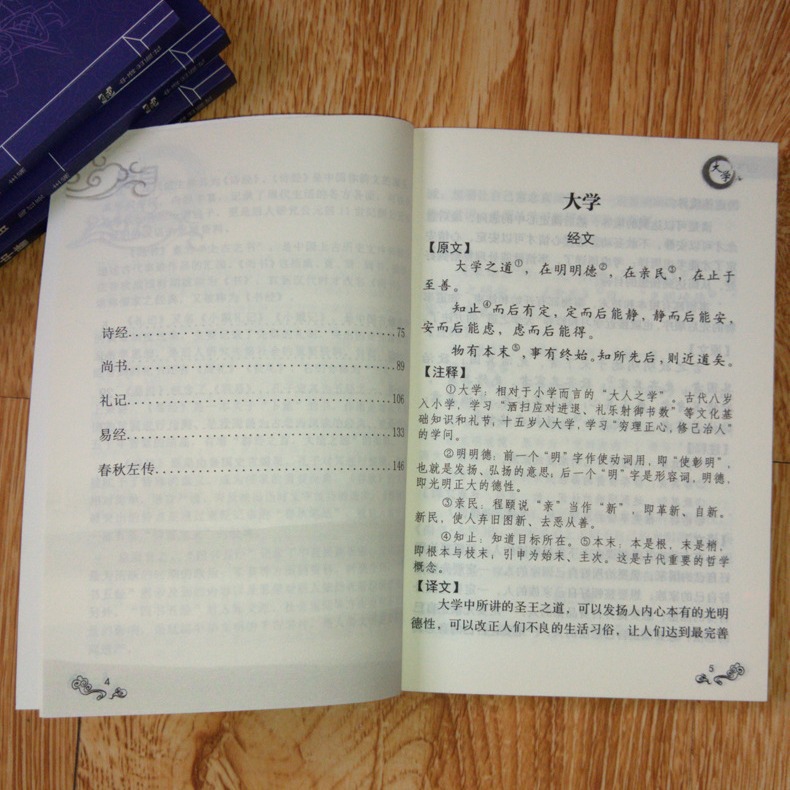 诗经………………75
尚书………………89
礼记………………106
易经………………133
春秋左传………………146
4
大学
大学
经文
【原文】
大学之道①，在明明德②，在亲民③，在止于
至善。
知止④而后有定，定而后能静，静而后能安、
安而后能虑，虑而后能得。
物有本末⑤，事有终始。知所先后，则近道矣。
【注释】
①大学：相对于小学而言的“大人之学”。古代八岁
入小学，学习“洒扫应对进退、礼乐射御书数”等文化基
础知识和礼节；十五岁入大学，学习“穷理正心，修己治人”
的学问。
②明明德：前一个“明”字作使动词用，即“使彰明”，
也就是发扬、弘扬的意思；后一个“明”字是形容词，明德，
即光明正大的德性。
③亲民：程颐说“亲”当作“新”，即革新、自新。
新民，使人弃旧图新、去恶从善。
④知止：知道目标所在。⑤本末：本是根，末是梢，
即根本与枝末，引申为始末、主次。这是古代重要的哲学
概念。
【译文】
大学中所讲的圣王之道，可以发扬人内心本有的光明
德性，可以改正人们不良的生活习俗，让人们达到最完善
5